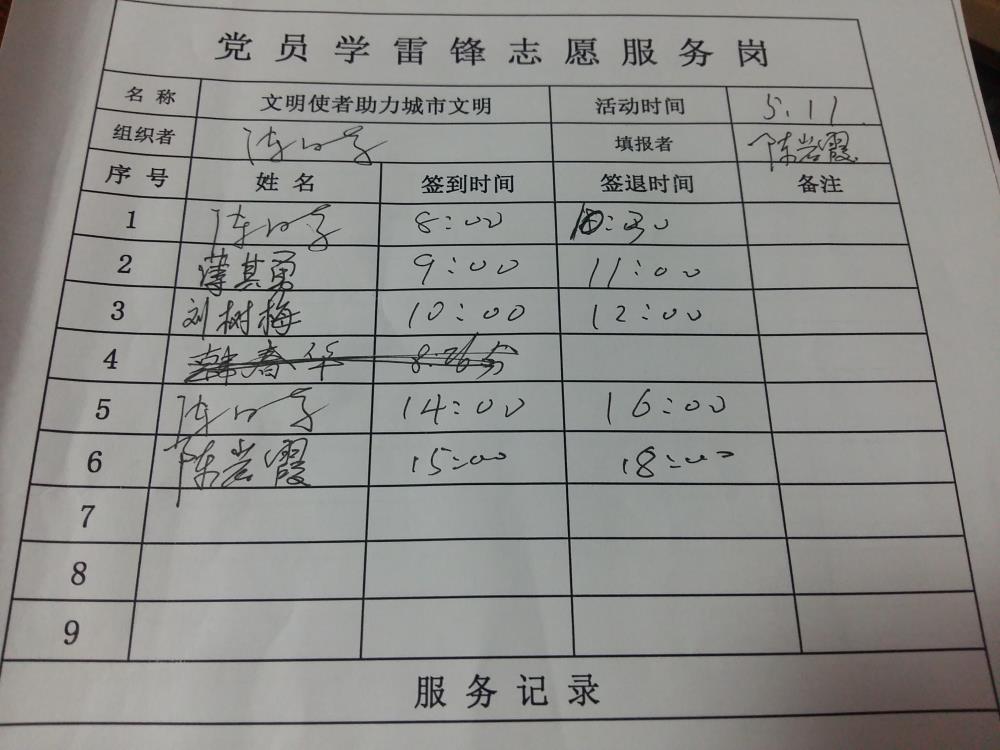 党员学雷锋志愿服务岗
名称 文明使者助力城市文明 活动时间 5.11.
组织者 填报者 陈岩霞
序号 姓名 签到时间 签退时间 备注
1 8:00 :30
2 薄其勇 9:00 11:00
3 刘树梅 10:00 12:00
4 韩春华
5 14:00 16:00
6 陈岩霞 15:00 18:00
7
8
9
服务记录